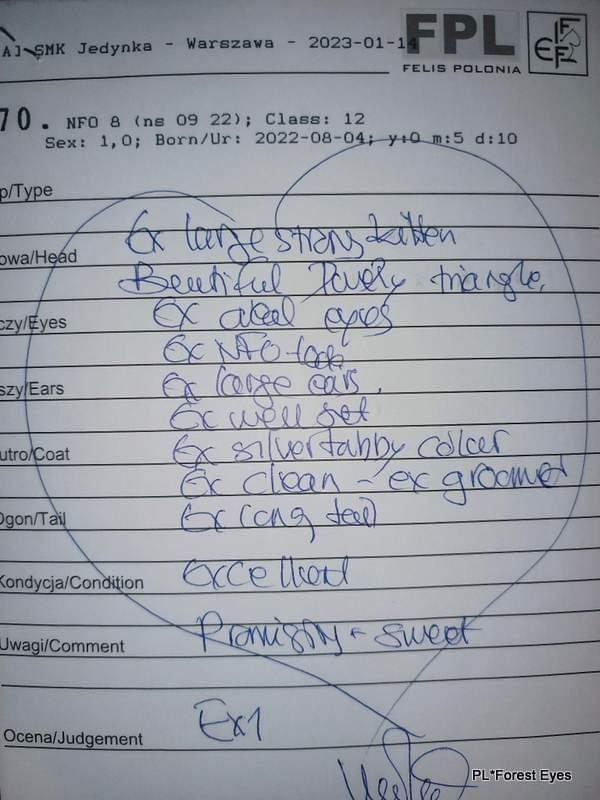 AJ SMK Jedynka - Warszawa - 2023-01-14
FPL
FELIS POLONIA
FIFe
70. NFO 8 (ns 09 22); Class: 12
Sex: 1,0; Born/Ur: 2022-08-04; y:0 m:5 d:10
p/Type
Ex large strong kitten
owa/Head
Beautiful lovely triangle,
czy/Eyes
Ex oval eyes
Ex NFO-look
szy/Ears
Ex large ears,
Ex well set
utro/Coat
Ex silvertabby colour
Ex clean - ex groomed
Ogon/Tail
Ex long tail
Kondycja/Condition
Excellent
Uwagi/Comment
Promising - sweet
Ocena/Judgement
Ex1
PL*Forest Eyes